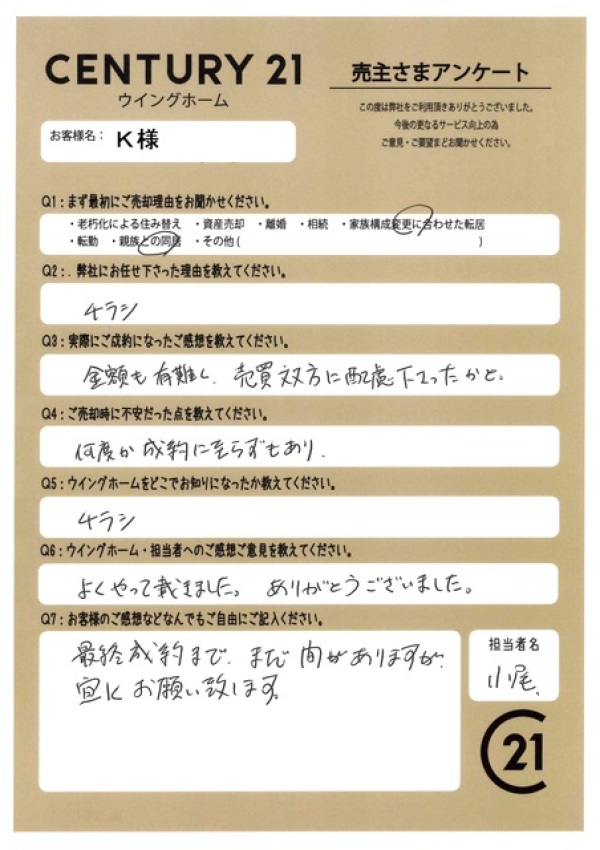 CENTURY 21
ウイングホーム
売主さまアンケート
この度は弊社をご利用頂きありがとうございました。
今後の更なるサービス向上の為
ご意見・ご要望まどお聞かせください。
お客様名： K様
Q1：まず最初にご売却理由をお聞かせください。
・老朽化による住み替え ・資産売却 ・離婚 ・相続 ・家族構成変更に合わせた転居
・転勤 ・親族との同居 ・その他 ( )
Q2：．弊社にお任せ下さった理由を教えてください。
チラシ
Q3：実際にご成約になったご感想を教えてください。
金額も有難く、売買双方に配慮下さったかと。
Q4：ご売却時に不安だった点を教えてください。
何度か成約に至らずもあり、
Q5：ウイングホームをどこでお知りになったか教えてください。
チラシ
Q6：ウイングホーム・担当者へのご感想ご意見を教えてください。
よくやって戴きました。 ありがとうございました。
Q7：お客様のご感想などなんでもご自由にご記入ください。
最終成約まで、まだ間がありますが、
宜しくお願い致します。
担当者名
小尾、
C21